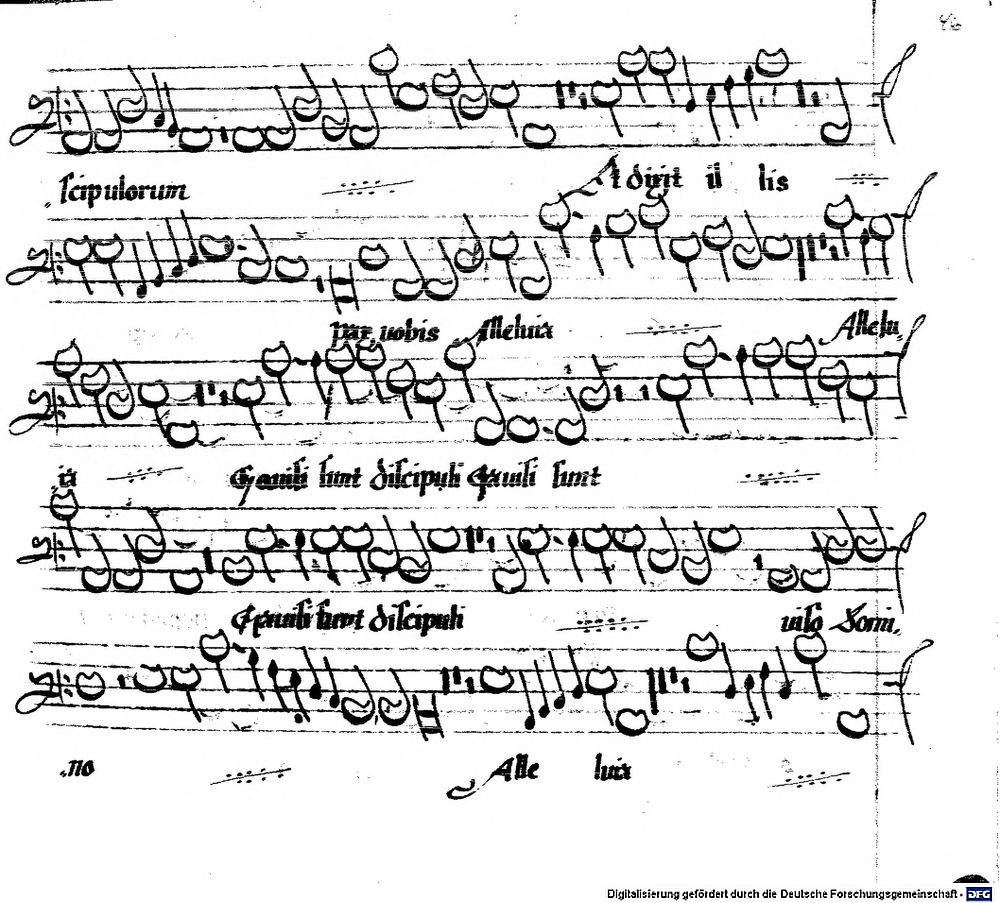 46
scipulorum Et dixit il lis
pax uobis Alleluia Allelu,
ia Gauisi sunt discipuli Gauisi sunt
Gauisi sunt discipuli uiso Domi,
no Alle luia
Digitalisierung gefördert durch die Deutsche Forschungsgemeinschaft - DFG